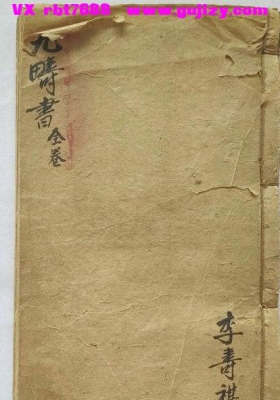 VX rbt7688 www.gujizy.com
九疇書
全卷
李壽祺